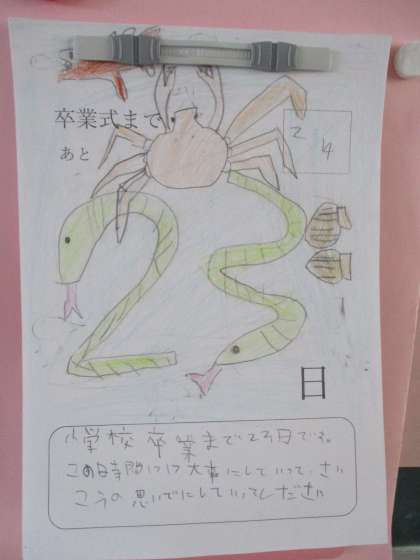 卒業式まで
あと
2 14
23
日
小学校卒業まで23日です。
この時間1つ1つ大事にしていって、さい
こうの思いでにしていってください